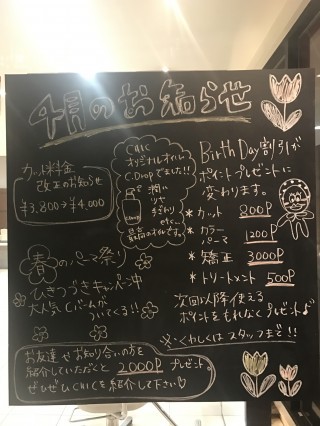 4月のお知らせ
カット料金
改正のお知らせ
¥3,800→¥4,000
CHIC
オリジナルオイル
C.Dropでました!!
潤い
ツヤ
手ざわり
etc...
Birth Day割引が
ポイントプレゼントに
変わります。
* カット 800P
* カラー
パーマ 1200P
* 矯正 3000P
* トリートメント 500P
次回以降使える
ポイントをもれなくプレゼント♪
※くわしくはスタッフまで!!
春のパーマ祭り
ひきつづきキャンペーン中
大人気Cバームが
ついてくる!!
お友達やお知り合いの方を
紹介していただくと 2000P プレゼント。
ぜひぜひCHICを紹介して下さい♡